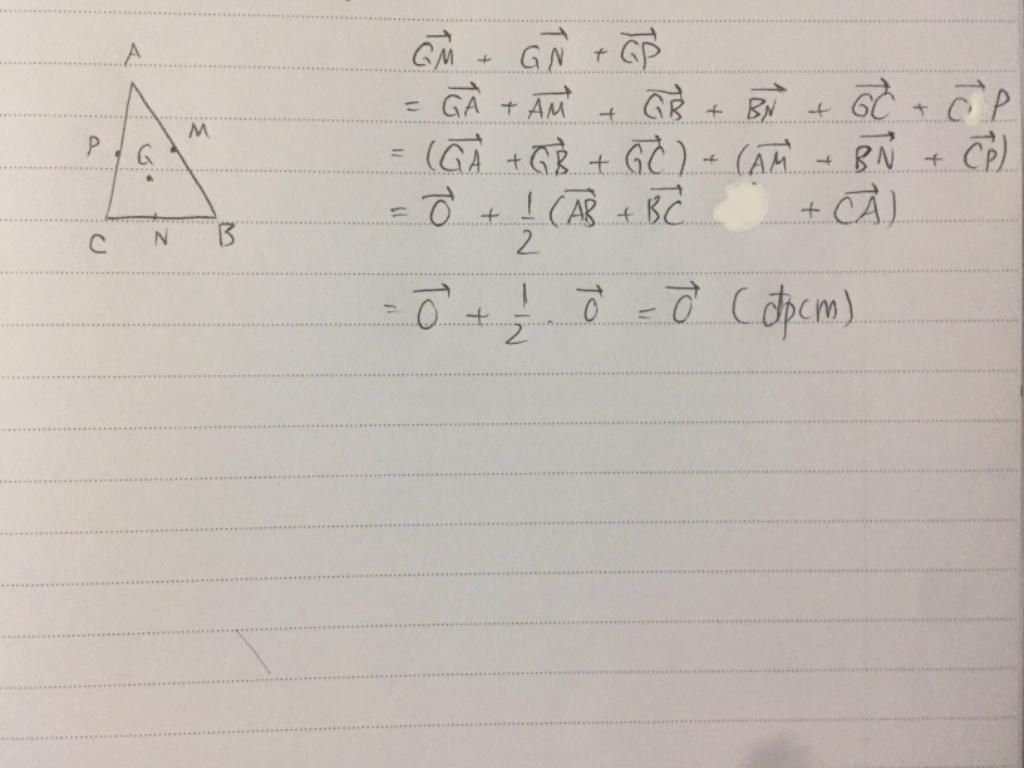 A
P
M
G
C
N
B
$\overrightarrow{GM} + \overrightarrow{GN} + \overrightarrow{GP}$
$= \overrightarrow{GA} + \overrightarrow{AM} + \overrightarrow{GB} + \overrightarrow{BN} + \overrightarrow{GC} + \overrightarrow{CP}$
$= (\overrightarrow{GA} + \overrightarrow{GB} + \overrightarrow{GC}) + (\overrightarrow{AM} + \overrightarrow{BN} + \overrightarrow{CP})$
$= \overrightarrow{0} + \frac{1}{2} (\overrightarrow{AB} + \overrightarrow{BC} + \overrightarrow{CA})$
$= \overrightarrow{0} + \frac{1}{2} . \overrightarrow{0} = \overrightarrow{0}$ (đpcm)